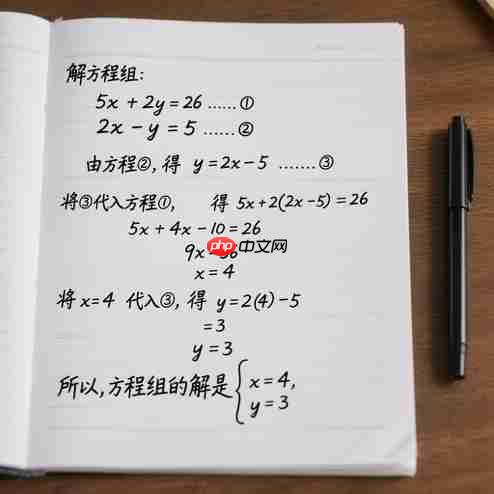 解方程组:
5x + 2y = 26 ...... ①
2x - y = 5 ...... ②
由方程②, 得 y = 2x - 5 ....... ③
将③代入方程①, 得 5x + 2(2x - 5) = 26
5x + 4x - 10 = 26
9x
php 中文网
x = 4
将 x = 4 代入③, 得 y = 2(4) - 5
= 3
y = 3
所以, 方程组的解是 { x = 4,
y = 3